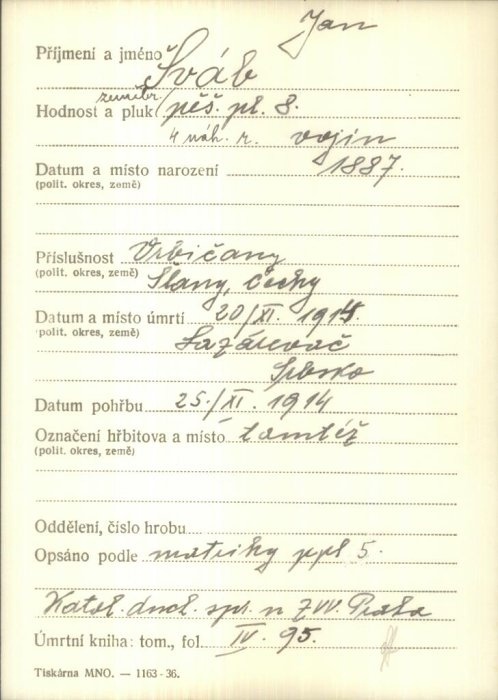 Jan
Příjmení a jméno Šváb
zeměbr.
Hodnost a pluk pěš. pl. 8.
4 náh. r. vojín
Datum a místo narození 1887.
(polit. okres, země)
Příslušnost Vrbičany
(polit. okres, země) Slaný, Čechy
Datum a místo úmrtí 20/XI. 1914
(polit. okres, země) Lazarevač
Srbsko
Datum pohřbu 25./XI. 1914
Označení hřbitova a místo tamtéž
(polit. okres, země)
Oddělení, číslo hrobu
Opsáno podle matriky ppl 5.
Katol. duch. spr. n ZVV. Praha
Úmrtní kniha: tom., fol. IV. 95.
Tiskárna MNO. — 1163-36.